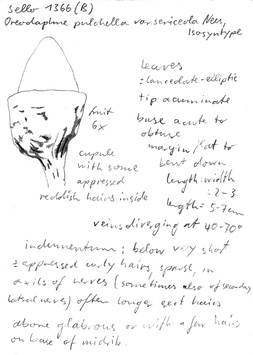 Sello 1366 (B)
Oreodaphne pulchella var. sericeola Nees,
Isosyntype
leaves
± lanceolate-elliptic
tip acuminate
fruit
6x
base acute to
obtuse
margin flat to
bent down
cupule
with some
appressed
reddish hairs inside
length:width
: 2-3
length = 5-7cm
veins diverging at 40-70°
indumentum: below very short
± appressed curly hairs, sparse, in
axils of nerves (sometimes also of secondary
lateral nerves) often longer erect hairs
above glabrous or with a few hairs
on base of midrib.